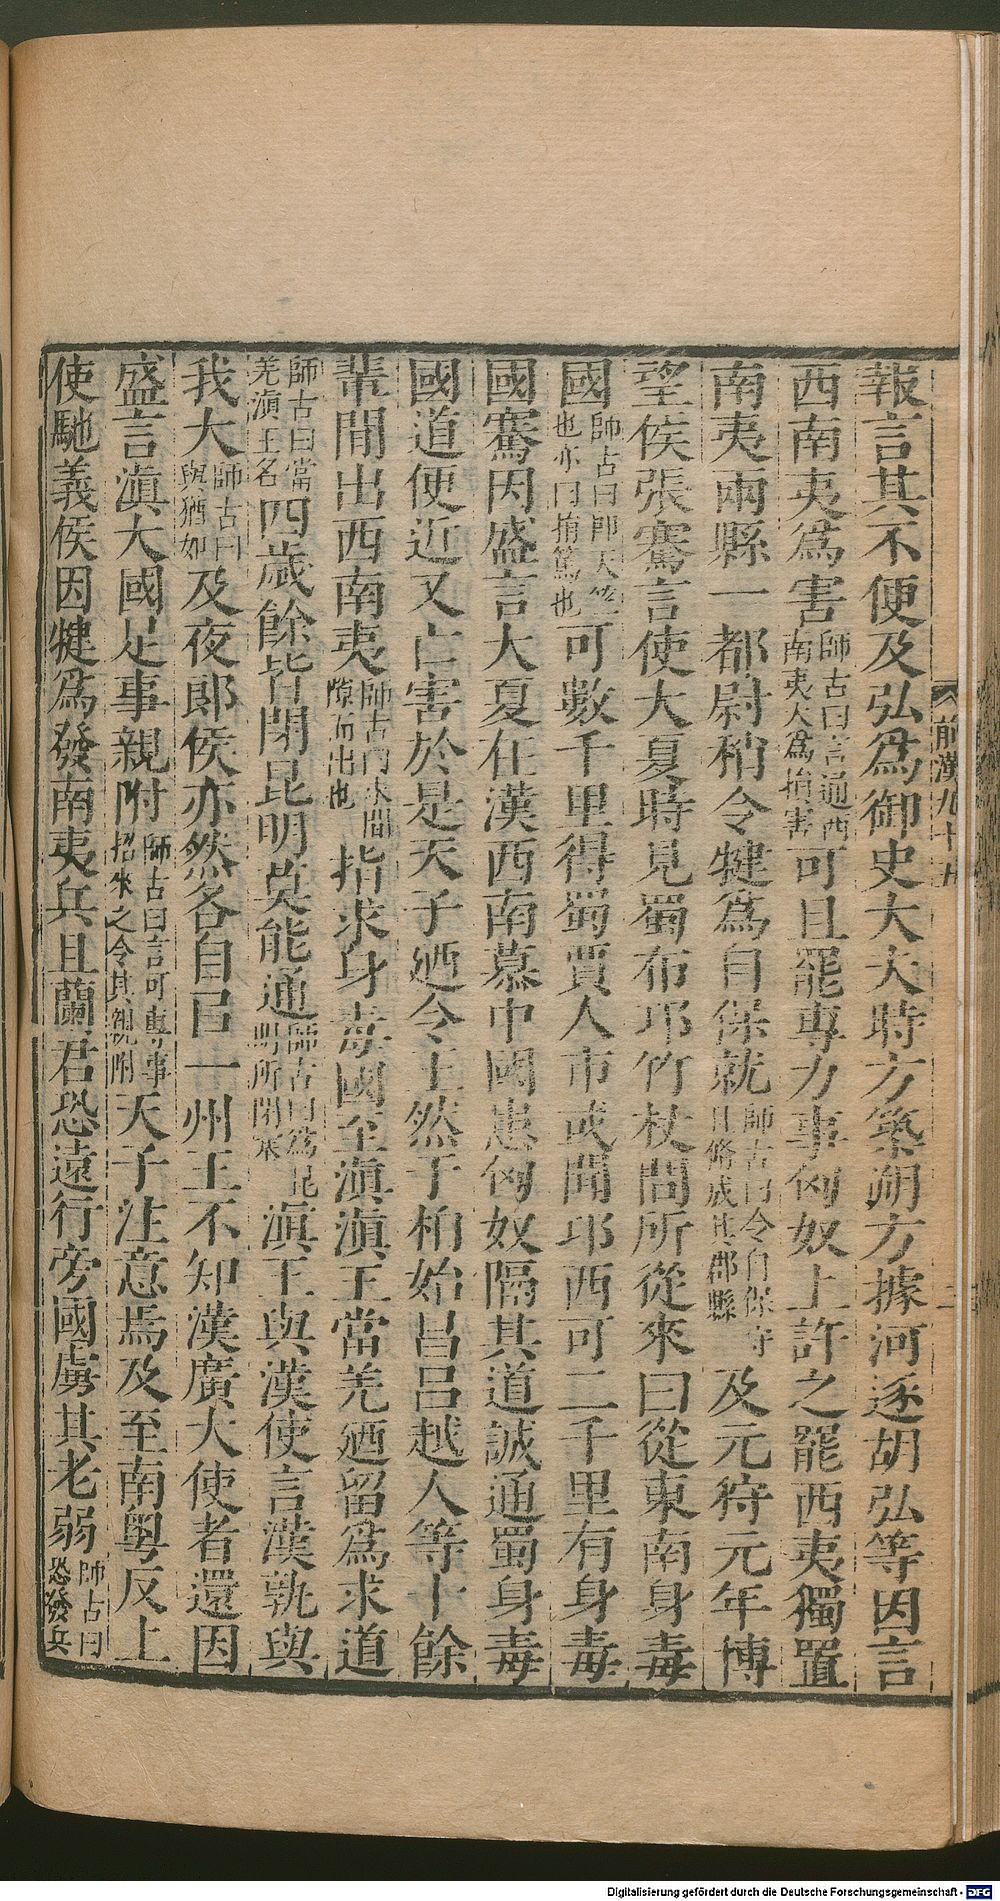 報言其不便及弘爲御史大夫時方築朔方據河逐胡弘等因言
西南夷爲害師古曰言通西南夷大爲損害可且罷專力事匈奴上許之罷西夷獨置
南夷兩縣一都尉稍令犍爲自保就師古曰令自保守且脩成其郡縣及元狩元年博
望侯張騫言使大夏時見蜀布邛竹杖問所從來曰從東南身毒
國師古曰即天竺也亦曰捐篤也可數千里得蜀賈人市或聞邛西可二千里有身毒
國騫因盛言大夏在漢西南慕中國患匈奴隔其道誠通蜀身毒
國道便近又亡害於是天子迺令王然于柏始昌呂越人等十餘
輩間出西南夷師古曰求間隙而出也指求身毒國至滇滇王當羌迺留爲求道
師古曰當羌滇王名四歲餘皆閉昆明莫能通師古曰爲昆明所閉塞滇王與漢使言漢孰與
我大師古曰與猶如及夜郎侯亦然各自㠯一州王不知漢廣大使者還因
盛言滇大國足事親附師古曰言可專事招來之令其親附天子注意焉及至南粵反上
使馳義侯因犍爲發南夷兵且蘭君恐遠行旁國虜其老弱師古曰恐發兵
前漢九十五
二
Digitalisierung gefördert durch die Deutsche Forschungsgemeinschaft - DFG